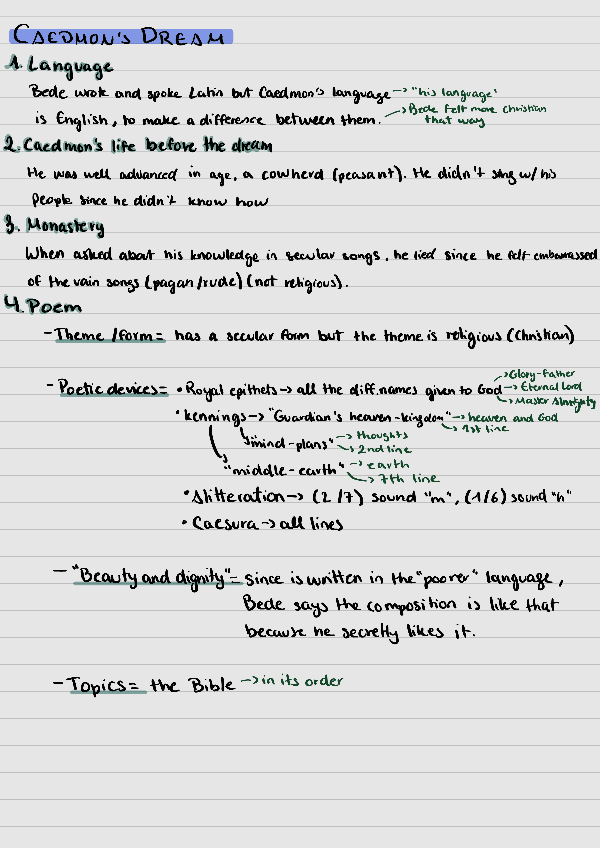 CAEDMON'S DREAM
1. Language
Bede wrote and spoke Latin but Caedmon's language -> "his language"
is English, to make a difference between them. -> Bede felt more Christian
that way
2. Caedmon's life before the dream
He was well advanced in age, a cowherd (peasant). He didn't sing w/ his
people since he didn't know how
3. Monastery
When asked about his knowledge in secular songs, he lied since he felt embarrassed
of the vain songs (pagan/rude) (not religious).
4. Poem
- Theme/form= has a secular form but the theme is religious (Christian)
-> Glory-Father
- Poetic devices= • Royal epithets -> all the diff. names given to God -> Eternal Lord
-> Master Almighty
• kennings -> "Guardian's heaven-kingdom" -> heaven and God
-> 1st line
"mind-plans" -> thoughts
-> 2nd line
"middle-earth" -> earth
-> 7th line
• Alitteration -> (2/7) sound "m", (1/6) sound "h"
• Caesura -> all lines
- "Beauty and dignity"= since is written in the "poorer" language,
Bede says the composition is like that
because he secretly likes it.
- Topics= the Bible -> in its order